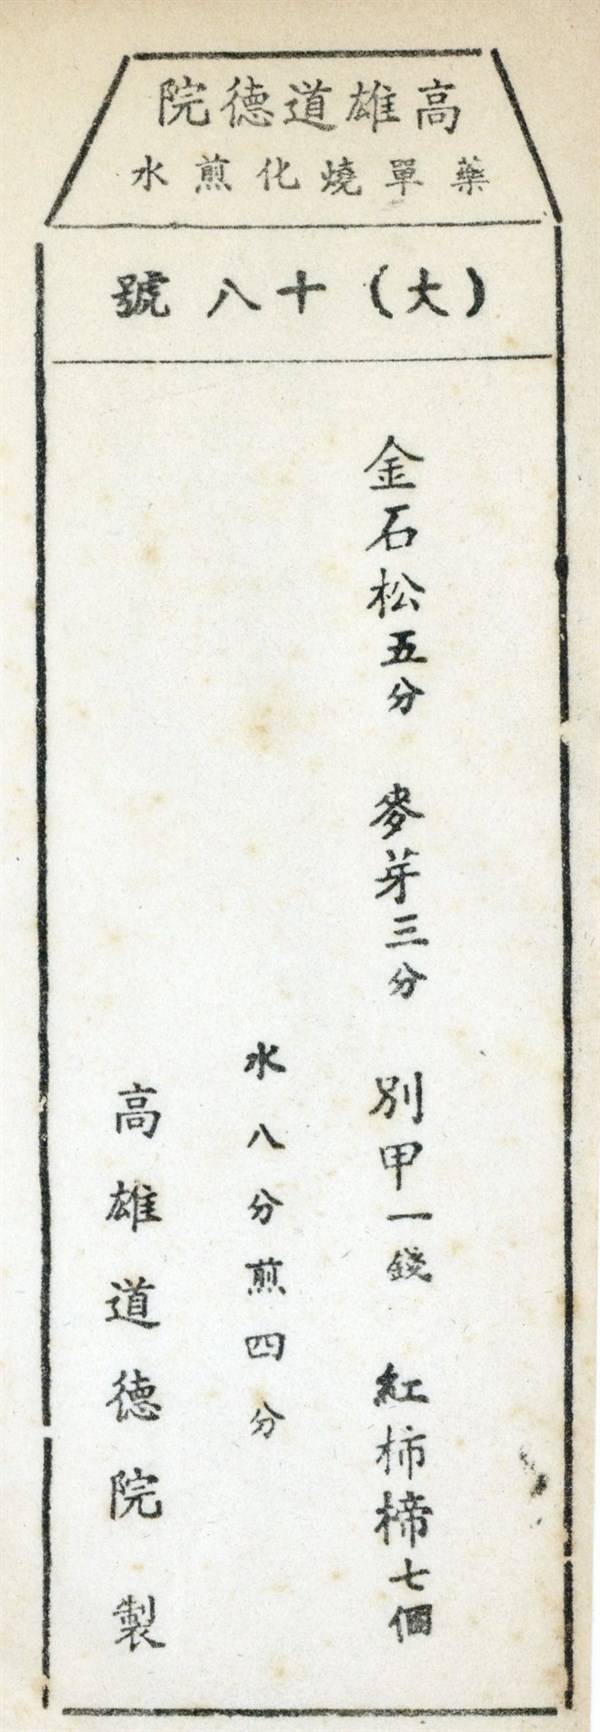 高雄道德院
藥單燒化煎水
(大)十八號
金石松五分 麥芽三分 別甲一錢 紅柿楴七個
水八分煎四分
高雄道德院製